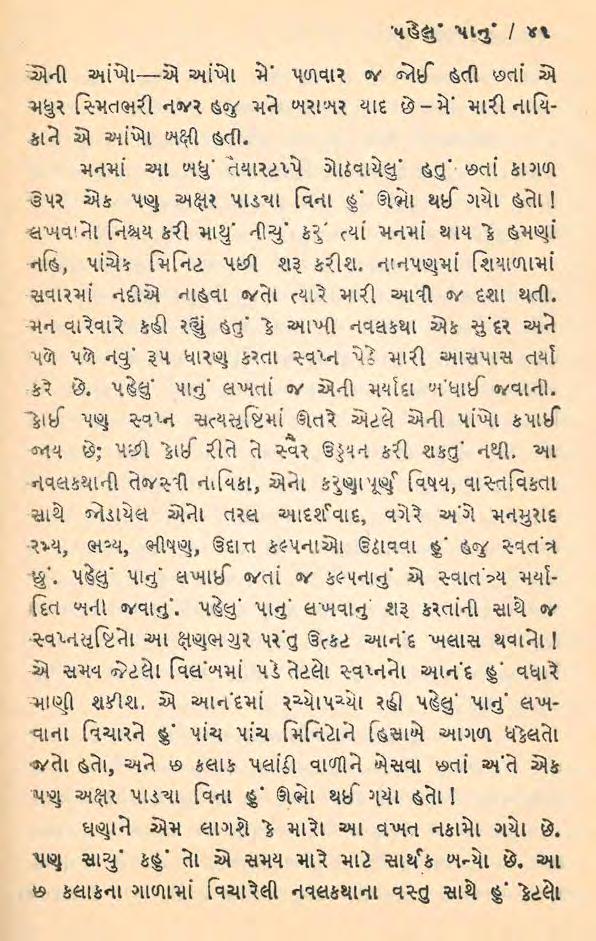 પહેલું પાનું / ૪૧
એની આંખો—એ આંખો મેં પળવાર જ જોઈ હતી છતાં એ
મધુર સ્મિતભરી નજર હજુ મને બરાબર યાદ છે – મેં મારી નાયિ-
કાને એ આંખો બક્ષી હતી.
મનમાં આ બધું તૈયારટપ્પે ગોઠવાયેલું હતું છતાં કાગળ
ઉપર એક પણ અક્ષર પાડ્યા વિના હું ઊભો થઈ ગયો હતો !
લખવાનો નિશ્ચય કરી માથું નીચું કરું ત્યાં મનમાં થાય કે હમણાં
નહિ, પાંચેક મિનિટ પછી શરૂ કરીશ. નાનપણમાં શિયાળામાં
સવારમાં નદીએ નાહવા જતો ત્યારે મારી આવી જ દશા થતી.
મન વારેવારે કહી રહ્યું હતું કે આખી નવલકથા એક સુંદર અને
પળે પળે નવું રૂપ ધારણ કરતા સ્વપ્ન પેઠે મારી આસપાસ તર્યા
કરે છે. પહેલું પાનું લખતાં જ એની મર્યાદા બંધાઈ જવાની.
કોઈ પણ સ્વપ્ન સત્યસૃષ્ટિમાં ઊતરે એટલે એની પાંખો કપાઈ
જાય છે; પછી કોઈ રીતે તે સ્વૈર ઉડ્ડયન કરી શકતું નથી. આ
નવલકથાની તેજસ્વી નાયિકા, એનો કરુણાપૂર્ણ વિષય, વાસ્તવિકતા
સાથે જોડાયેલ એનો તરલ આદર્શવાદ, વગેરે અંગે મનમુરાદ
રમ્ય, ભવ્ય, ભીષણ, ઉદાત્ત કલ્પનાઓ ઉઠાવવા હું હજુ સ્વતંત્ર
છું. પહેલું પાનું લખાઈ જતાં જ કલ્પનાનું એ સ્વાતંત્ર્ય મર્યા-
દિત બની જવાનું. પહેલું પાનું લખવાનું શરૂ કરતાંની સાથે જ
સ્વપ્નસૃષ્ટિનો આ ક્ષણભંગુર પરંતુ ઉત્કટ આનંદ ખલાસ થવાનો !
એ સમય જેટલો વિલંબમાં પડે તેટલો સ્વપ્નનો આનંદ હું વધારે
માણી શકીશ. એ આનંદમાં રચ્યોપચ્યો રહી પહેલું પાનું લખ-
વાના વિચારને હું પાંચ પાંચ મિનિટોને હિસાબે આગળ ધકેલતો
જતો હતો, અને છ કલાક પલાંઠી વાળીને બેસવા છતાં અંતે એક
પણ અક્ષર પાડ્યા વિના હું ઊભો થઈ ગયો હતો !
ઘણાને એમ લાગશે કે મારો આ વખત નકામો ગયો છે.
પણ સાચું કહું તો એ સમય મારે માટે સાર્થક બન્યો છે. આ
છ કલાકના ગાળામાં વિચારેલી નવલકથાના વસ્તુ સાથે હું કેટલો